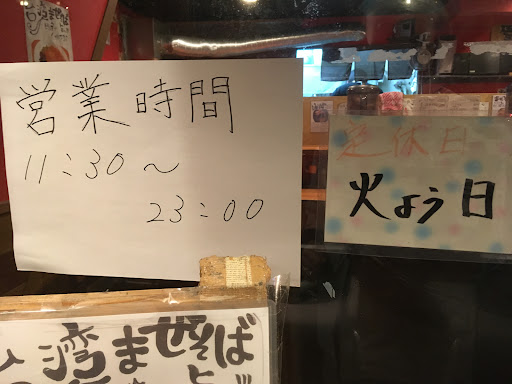 営業時間
11:30～
23:00
定休日
火よう日
湾まぜそば